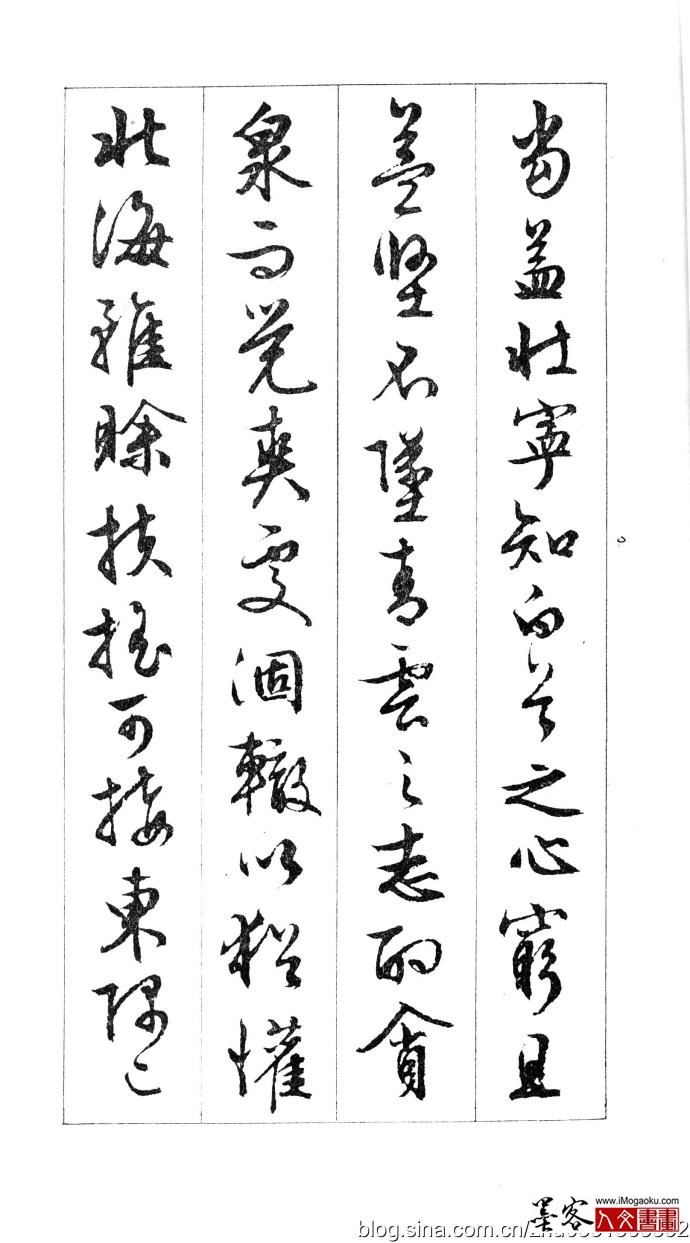 當益壯寧知白首之心窮且
益堅不墜青雲之志酌貪
泉而覺爽處涸轍以猶懽
北海雖賒扶搖可接東隅已
www.iMogaoku.com
墨客人文書畫